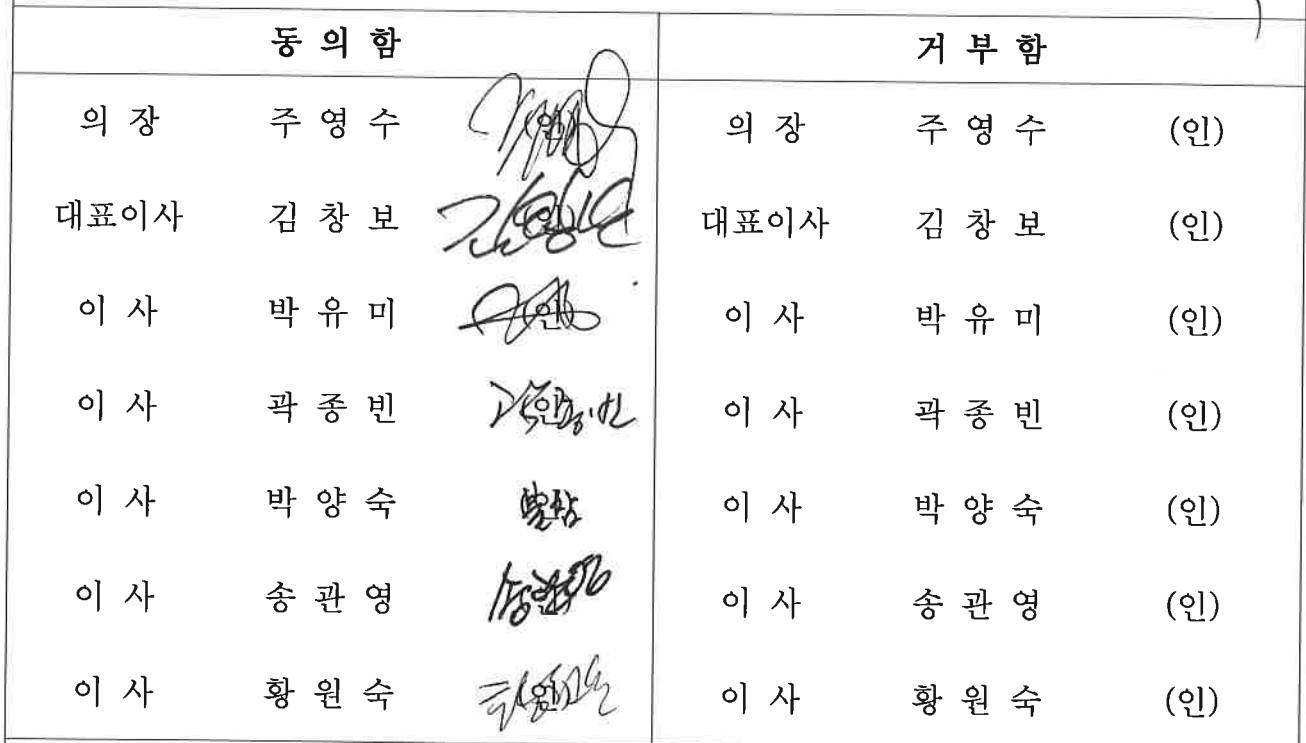 동 의 함 거 부 함
의 장 주 영 수 (인) 의 장 주 영 수 (인)
대표이사 김 창 보 (인) 대표이사 김 창 보 (인)
이 사 박 유 미 (인) 이 사 박 유 미 (인)
이 사 곽 종 빈 (인) 이 사 곽 종 빈 (인)
이 사 박 양 숙 이 사 박 양 숙 (인)
이 사 송 관 영 (인) 이 사 송 관 영 (인)
이 사 황 원 숙 (인) 이 사 황 원 숙 (인)